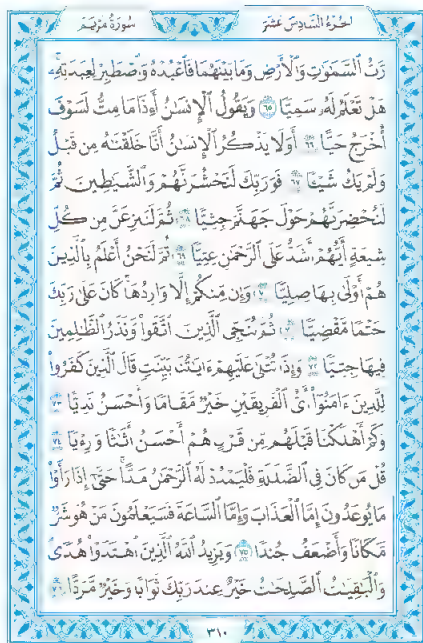 الجزء السادس عشر
سورة مريم
رَّبُّ السَّمَٰوَٰتِ وَالْأَرْضِ وَمَا بَيْنَهُمَا فَاعْبُدْهُ وَاصْطَبِرْ لِعِبَٰدَتِهِۦ
هَلْ تَعْلَمُ لَهُۥ سَمِيًّا ٦٥ وَيَقُولُ الْإِنسَٰنُ أَءِذَا مَا مِتُّ لَسَوْفَ
أُخْرَجُ حَيًّا ٦٦ أَوَلَا يَذْكُرُ الْإِنسَٰنُ أَنَّا خَلَقْنَٰهُ مِن قَبْلُ
وَلَمْ يَكُ شَيْـًٔا ٦٧ فَوَرَبِّكَ لَنَحْشُرَنَّهُمْ وَالشَّيَٰطِينَ ثُمَّ
لَنُحْضِرَنَّهُمْ حَوْلَ جَهَنَّمَ جِثِيًّا ٦٨ ثُمَّ لَنَنزِعَنَّ مِن كُلِّ
شِيعَةٍ أَيُّهُمْ أَشَدُّ عَلَى الرَّحْمَٰنِ عِتِيًّا ٦٩ ثُمَّ لَنَحْنُ أَعْلَمُ بِالَّذِينَ
هُمْ أَوْلَىٰ بِهَا صِلِيًّا ٧٠ وَإِن مِّنكُمْ إِلَّا وَارِدُهَا كَانَ عَلَىٰ رَبِّكَ
حَتْمًا مَّقْضِيًّا ٧١ ثُمَّ نُنَجِّى الَّذِينَ اتَّقَوا۟ وَّنَذَرُ الظَّٰلِمِينَ
فِيهَا جِثِيًّا ٧٢ وَإِذَا تُتْلَىٰ عَلَيْهِمْ ءَايَٰتُنَا بَيِّنَٰتٍ قَالَ الَّذِينَ كَفَرُوا۟
لِلَّذِينَ ءَامَنُوٓا۟ أَىُّ الْفَرِيقَيْنِ خَيْرٌ مَّقَامًا وَأَحْسَنُ نَدِيًّا ٧٣
وَكَمْ أَهْلَكْنَا قَبْلَهُم مِّن قَرْنٍ هُمْ أَحْسَنُ أَثَٰثًا وَرِءْيًا ٧٤
قُلْ مَن كَانَ فِى الضَّلَٰلَةِ فَلْيَمْدُدْ لَهُ الرَّحْمَٰنُ مَدًّا حَتَّىٰٓ إِذَا رَأَوْا۟
مَا يُوعَدُونَ إِمَّا الْعَذَابَ وَإِمَّا السَّاعَةَ فَسَيَعْلَمُونَ مَنْ هُوَ شَرٌّ
مَّكَانًا وَأَضْعَفُ جُندًا ٧٥ وَيَزِيدُ اللَّهُ الَّذِينَ اهْتَدَوْا۟ هُدًى
وَالْبَٰقِيَٰتُ الصَّٰلِحَٰتُ خَيْرٌ عِندَ رَبِّكَ ثَوَابًا وَخَيْرٌ مَّرَدًّا ٧٦
٣١٠